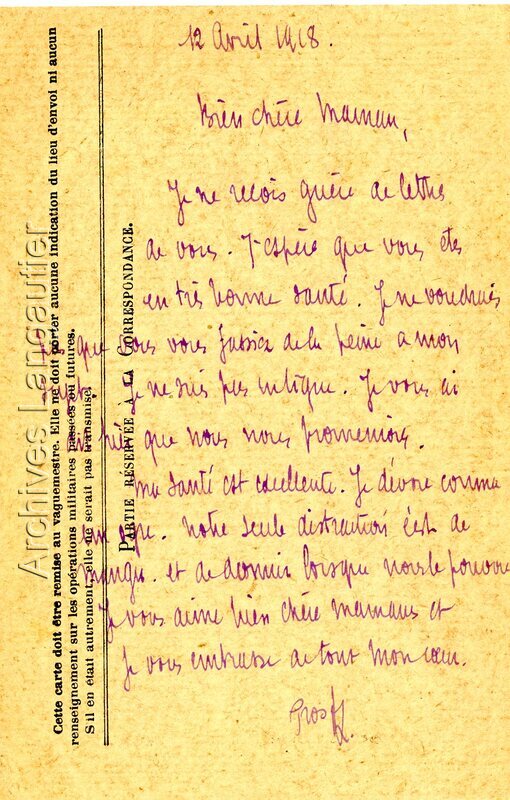 12 Avril 1918.
Bien chère Maman,
Je ne reçois guère de lettres
de vous. J'espère que vous êtes
en très bonne santé. Je ne voudrais
pas que vous vous fassiez de la peine à mon
sujet. Je ne suis pas fatigué. Je vous ai
que nous nous promenions.
ma santé est excellente. Je dévore comme
un ogre. Notre seule distraction c'est de
manger. et de dormir lorsque nous le pouvons
Je vous aime bien chère maman et
je vous embrasse de tout mon cœur.
PARTIE RÉSERVÉE À LA CORRESPONDANCE.
Cette carte doit être remise au vaguemestre. Elle ne doit porter aucune indication du lieu d'envoi ni aucun
renseignement sur les opérations militaires passées ou futures.
S'il en était autrement, elle ne serait pas transmise.
Archives Lancautier